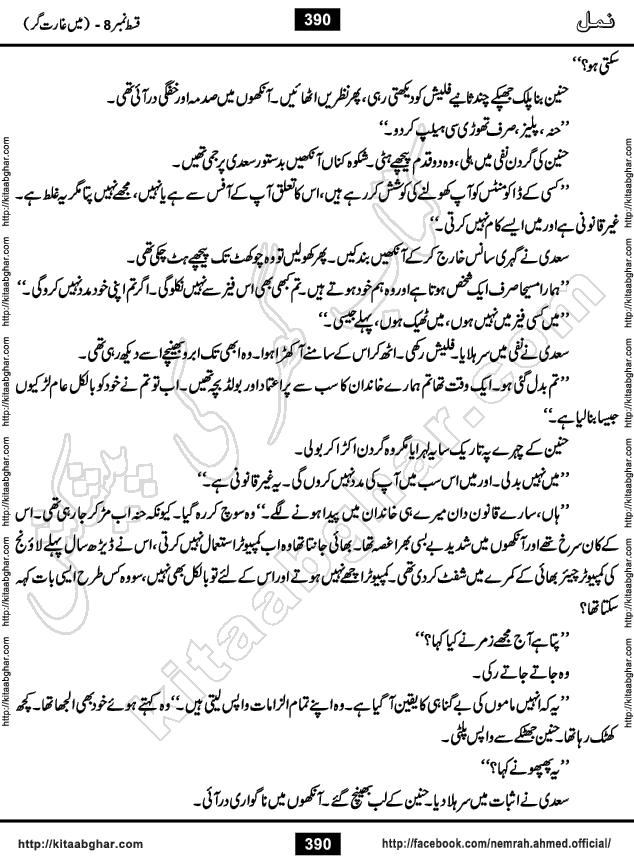 نمل
390
قسط نمبر 8 - (میں غارت گر)
سکتی ہو؟‘‘
حنین بنا پلک جھپکے چند ثانیے فلیش کو دیکھتی رہی، پھر نظریں اٹھائیں۔ آنکھوں میں صدمہ اور خفگی در آئی تھی۔
’’حنہ، پلیز، صرف تھوڑی سی ہیلپ کر دو۔‘‘
حنین کی گردن نفی میں ہلی، وہ دو قدم پیچھے ہٹی۔ شکوہ کناں آنکھیں بدستور سعدی پر جمی تھیں۔
’’کسی کے ڈاکومنٹس کو آپ کھولنے کی کوشش کر رہے ہیں، اس کا تعلق آپ کے آفس سے ہے یا نہیں، مجھے نہیں پتا مگر یہ غلط ہے۔
غیر قانونی ہے اور میں ایسے کام نہیں کرتی۔‘‘
سعدی نے گہری سانس خارج کر کے آنکھیں بند کیں۔ پھر کھولیں تو وہ چوکھٹ تک پیچھے ہٹ چکی تھی۔
’’ہمارا مسیحا صرف ایک شخص ہوتا ہے اور وہ ہم خود ہوتے ہیں۔ تم کبھی بھی اس فیز سے نہیں نکلو گی۔ اگر تم اپنی خود مدد نہیں کرو گی۔‘‘
’’میں کسی فیز میں نہیں ہوں، میں ٹھیک ہوں، پہلے جیسی۔‘‘
سعدی نے نفی میں سر ہلایا۔ فلیش رکھی۔ اٹھ کر اس کے سامنے آ کھڑا ہوا۔ وہ ابھی تک ابرو بھینچے اسے دیکھ رہی تھی۔
’’تم بدل گئی ہو۔ ایک وقت تھا تم ہمارے خاندان کا سب سے پر اعتماد اور بولڈ بچہ تھیں۔ اب تو تم نے خود کو بالکل عام لڑکیوں
جیسا بنا لیا ہے۔‘‘
حنین کے چہرے پہ تاریک سایہ لہرایا مگر وہ گردن اکڑا کر بولی۔
’’میں نہیں بدلی۔ اور میں اس سب میں آپ کی مدد نہیں کروں گی۔ یہ غیر قانونی ہے۔‘‘
’’ہاں، سارے قانون دان میرے ہی خاندان میں پیدا ہونے لگے۔‘‘ وہ سوچ کر رہ گیا۔ کیونکہ حنہ اب مڑ کر جا رہی تھی۔ اس
کے کان سرخ تھے اور آنکھوں میں شدید بے بسی بھرا غصہ تھا۔ بھائی جانتا تھا وہ اب کمپیوٹر استعمال نہیں کرتی، اس نے ڈیڑھ سال پہلے لاؤنج
کی کمپیوٹر چیئر بھائی کے کمرے میں شفٹ کر دی تھی۔ کمپیوٹر اچھے نہیں ہوتے اور اس کے لئے تو بالکل بھی نہیں، سو وہ کس طرح ایسی بات کہہ
سکتا تھا؟
’’پتا ہے آج مجھے زمر نے کیا کہا؟‘‘
وہ جاتے جاتے رکی۔
’’یہ کہ انہیں ماموں کی بے گناہی کا یقین آ گیا ہے۔ وہ اپنے تمام الزامات واپس لیتی ہیں۔‘‘ وہ کہتے ہوئے خود بھی الجھا تھا۔ کچھ
کھٹک رہا تھا۔ حنین جھٹکے سے واپس پلٹی۔
’’یہ پھپھو نے کہا؟‘‘
سعدی نے اثبات میں سر ہلا دیا۔ حنین کے لب بھینچ گئے۔ آنکھوں میں ناگواری در آئی۔
http://kitaabghar.com
390
http://facebook.com/nemrah.ahmed.official/
http://kitaabghar.com http://kitaabghar.com http://kitaabghar.com http://kitaabghar.com http://kitaabghar.com http://kitaabghar.com
http://kitaabghar.com http://kitaabghar.com http://kitaabghar.com http://kitaabghar.com http://kitaabghar.com http://kitaabghar.com
کتاب گھر کی پیشکش
kitaabghar.com